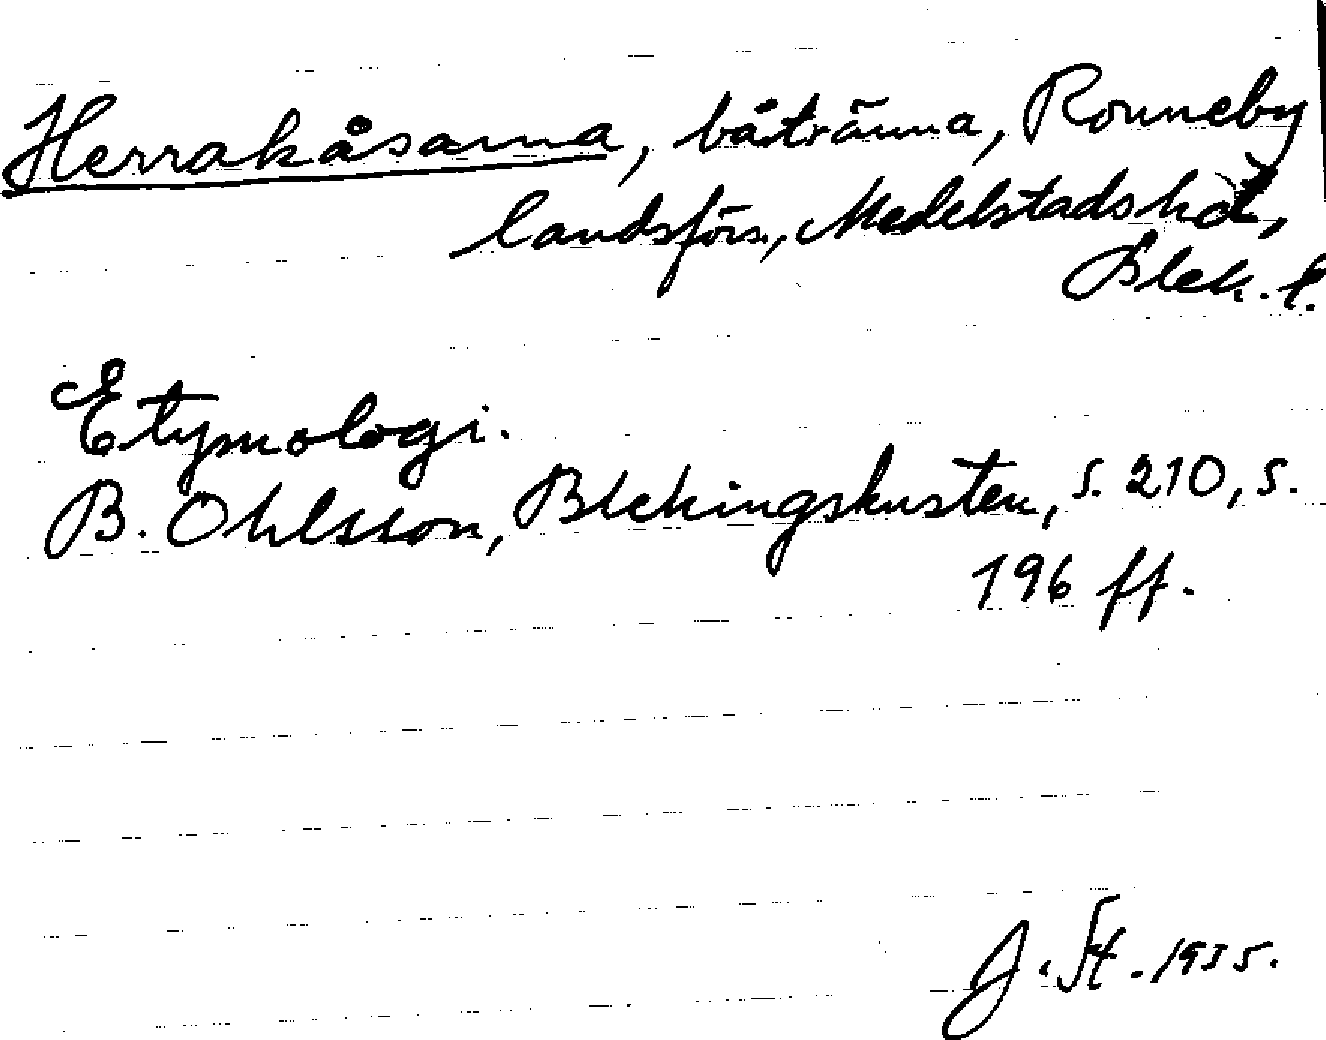 Herrakåsarna, båtränna, Ronneby
landsförs., Medelstads hd,
Blek. l.
Etymologi.
B. Ohlsson, Blekingskusten, s. 210, s.
196 ff.
J. St. 1955.